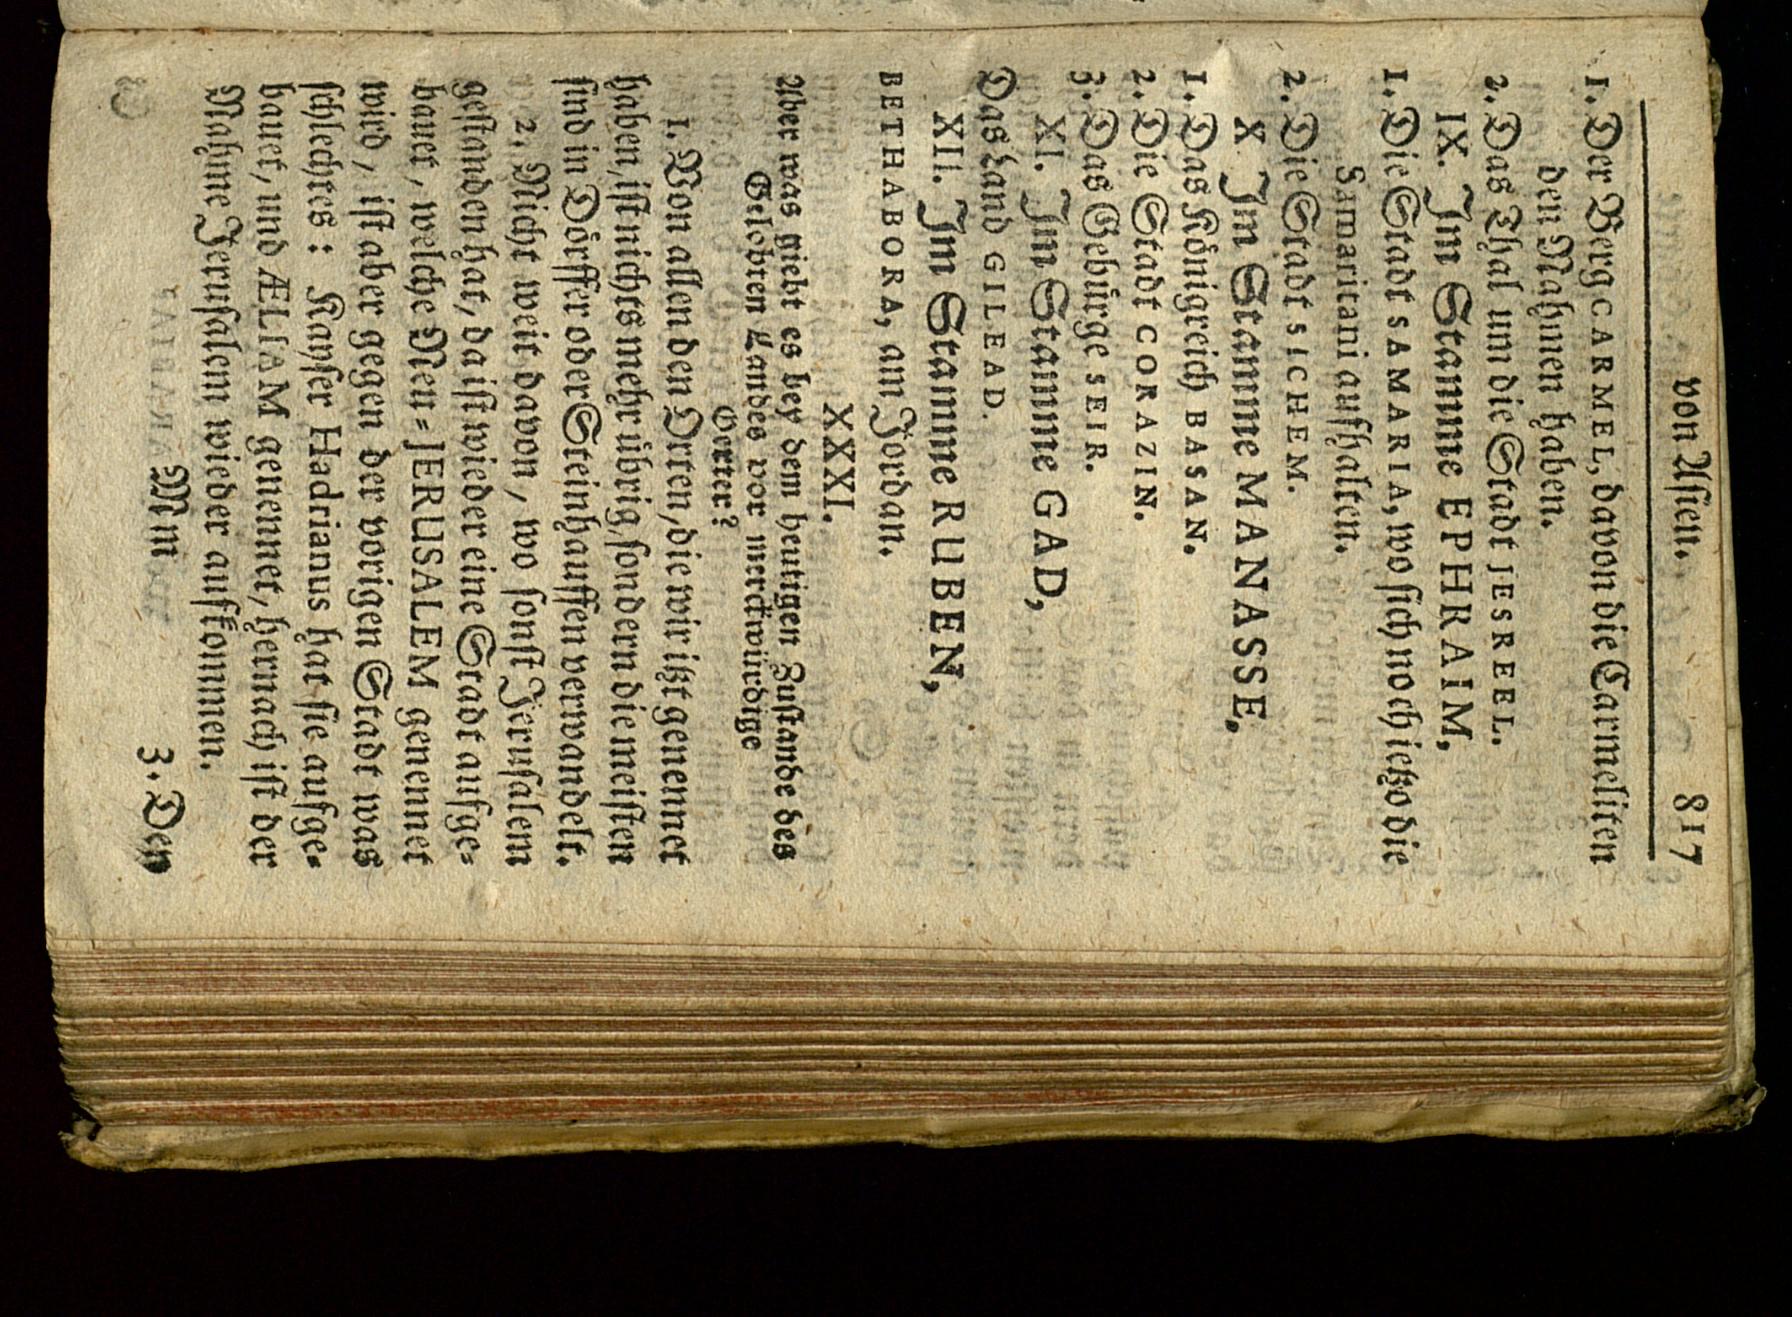 von Asien. 817
1. Der Berg CARMEL, davon die Carmeliten
den Nahmen haben.
2. Das Thal um die Stadt JESREEL.
IX. Jm Stamme EPHRAIM,
1. Die Stadt SAMARIA, wo sich noch ietzo die
Samaritani aufhalten.
2. Die Stadt SICHEM.
X. Jm Stamme MANASSE,
1. Das Königreich BASAN.
2. Die Stadt CORAZIN.
3. Das Gebürge SEIR.
XI. Jm Stamme GAD,
Das Land GILEAD.
XII. Jm Stamme RUBEN,
BETHABORA, am Jordan.
XXXI.
Aber was giebt es bey dem heutigen Zustande des
Gelobten Landes vor merckwürdige
Oerter?
1. Von allen den Orten, die wir itzt genennet
haben, ist nichts mehr übrig, sondern die meisten
sind in Dörffer oder Steinhauffen verwandelt.
2. Nicht weit davon, wo sonst Jerusalem
gestanden hat, da ist wieder eine Stadt aufge-
bauet, welche Neu-JERUSALEM genennet
wird, ist aber gegen der vorigen Stadt was
schlechtes: Kayser Hadrianus hat sie aufge-
bauet, und ÆLIAM genennet, hernach ist der
Nahme Jerusalem wieder aufkommen.
Mm 3. Den